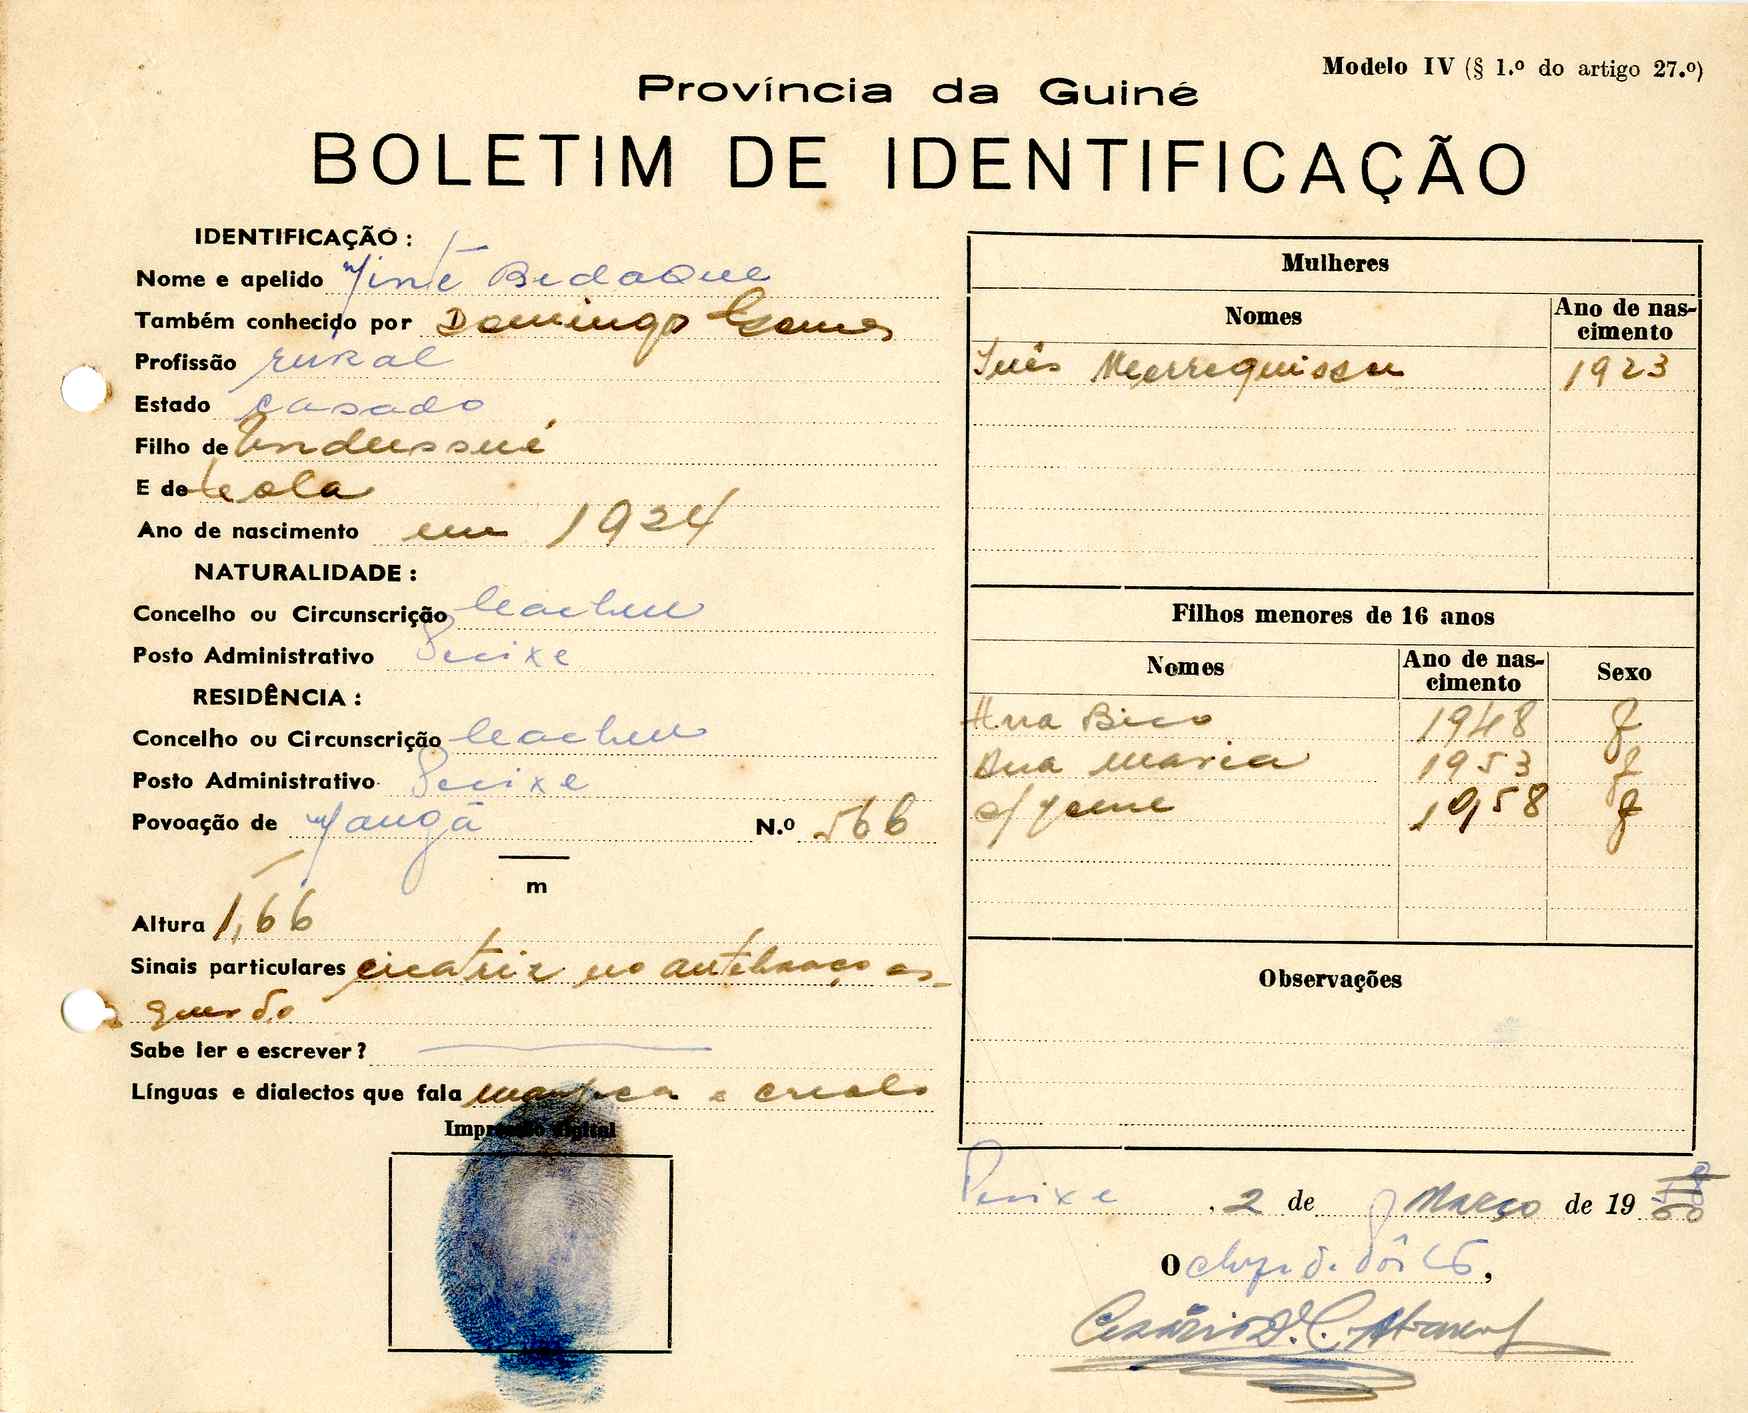 Modelo IV (§ 1.º do artigo 27.º)
Província da Guiné
BOLETIM DE IDENTIFICAÇÃO
IDENTIFICAÇÃO :
Nome e apelido Jinté Bedaque
Também conhecido por Domingo Gomes
Profissão rural
Estado casado
Filho de Undussué
E de
Ano de nascimento em 1924
NATURALIDADE :
Concelho ou Circunscrição Cacheu
Posto Administrativo Pecixe
RESIDÊNCIA :
Concelho ou Circunscrição Cacheu
Posto Administrativo Pecixe
Povoação de N.º 566
m
Altura 1,66
Sinais particulares cicatriz no antebraço es-
querdo
Sabe ler e escrever?
Línguas e dialectos que fala manjaca e criolo
Impressão digital
Mulheres
Nomes Ano de nas-
cimento
Inês 1923
Filhos menores de 16 anos
Nomes Ano de nas-
cimento Sexo
Ana Bico 1948 f
Ana Maria 1953 f
c/ 1958 f
Observações
Pecixe, 2 de Março de 19
O chefe de Pôsto,
Cesário D. C.